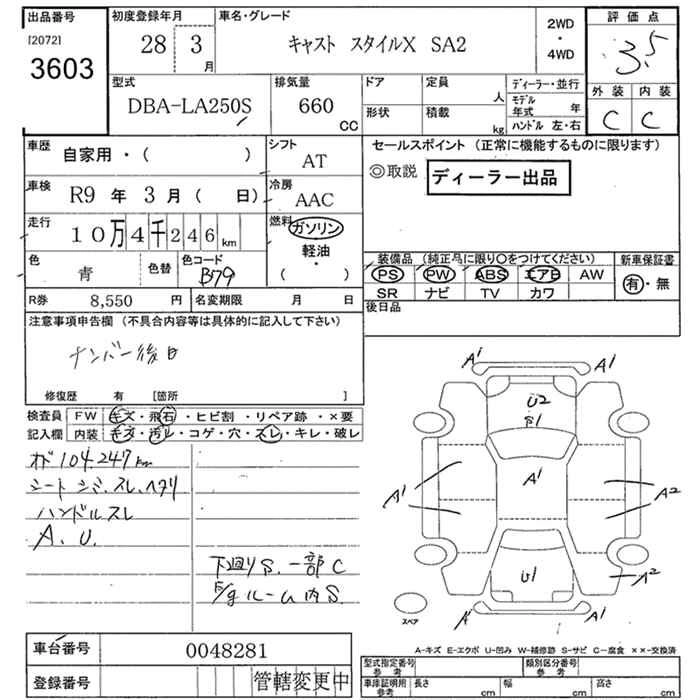 出品番号 初度登録年月 車名・グレード 2WD・4WD 評価点
[2072]
3603 28 3月 キャスト スタイルX SA2 3.5
型式 排気量 ドア 定員 人 ディーラー・並行 外装 内装
DBA-LA250S 660 CC 形状 積載 kg モデル年式 年 ハンドル 左・右 C C
車歴 自家用・( ) シフト AT セールスポイント (正常に機能するものに限ります)
車検 R9年3月( 日) 冷房 AAC ◎取説 ディーラー出品
走行 10万4千246km 燃料 ガソリン 軽油・( )
色 青 色替 色コード B79 装備品 (純正品に限り○をつけてください) 新車保証書
PS PW ABS エアB AW 有・無
SR ナビ TV カワ
R券 8,550 円 名変期限 月 日 後日品
注意事項申告欄 (不具合内容等は具体的に記入して下さい)
ナンバー後日
修復歴 有 [箇所 ]
検査員 FW キズ・飛石・ヒビ割・リペア跡・×要
記入欄 内装 キズ・汚レ・コゲ・穴・スレ・キレ・破レ
メ104.247km
シート シミ.スレ.ヘタリ
ハンドルスレ
A. U.
下廻りS. 一部C
E/gルーム内S.
A1 A1
U2
S1
A1
A1 A2
U1 A2
A1 A1
スペア
A-キズ E-エクボ U-凹み W-補修跡 S-サビ C-腐食 ××-交換済
車台番号 0048281 型式指定番号 参考 類別区分番号 参考
登録番号 管轄変更中 車庫証明用 参考 長さ cm 幅 cm 高さ cm